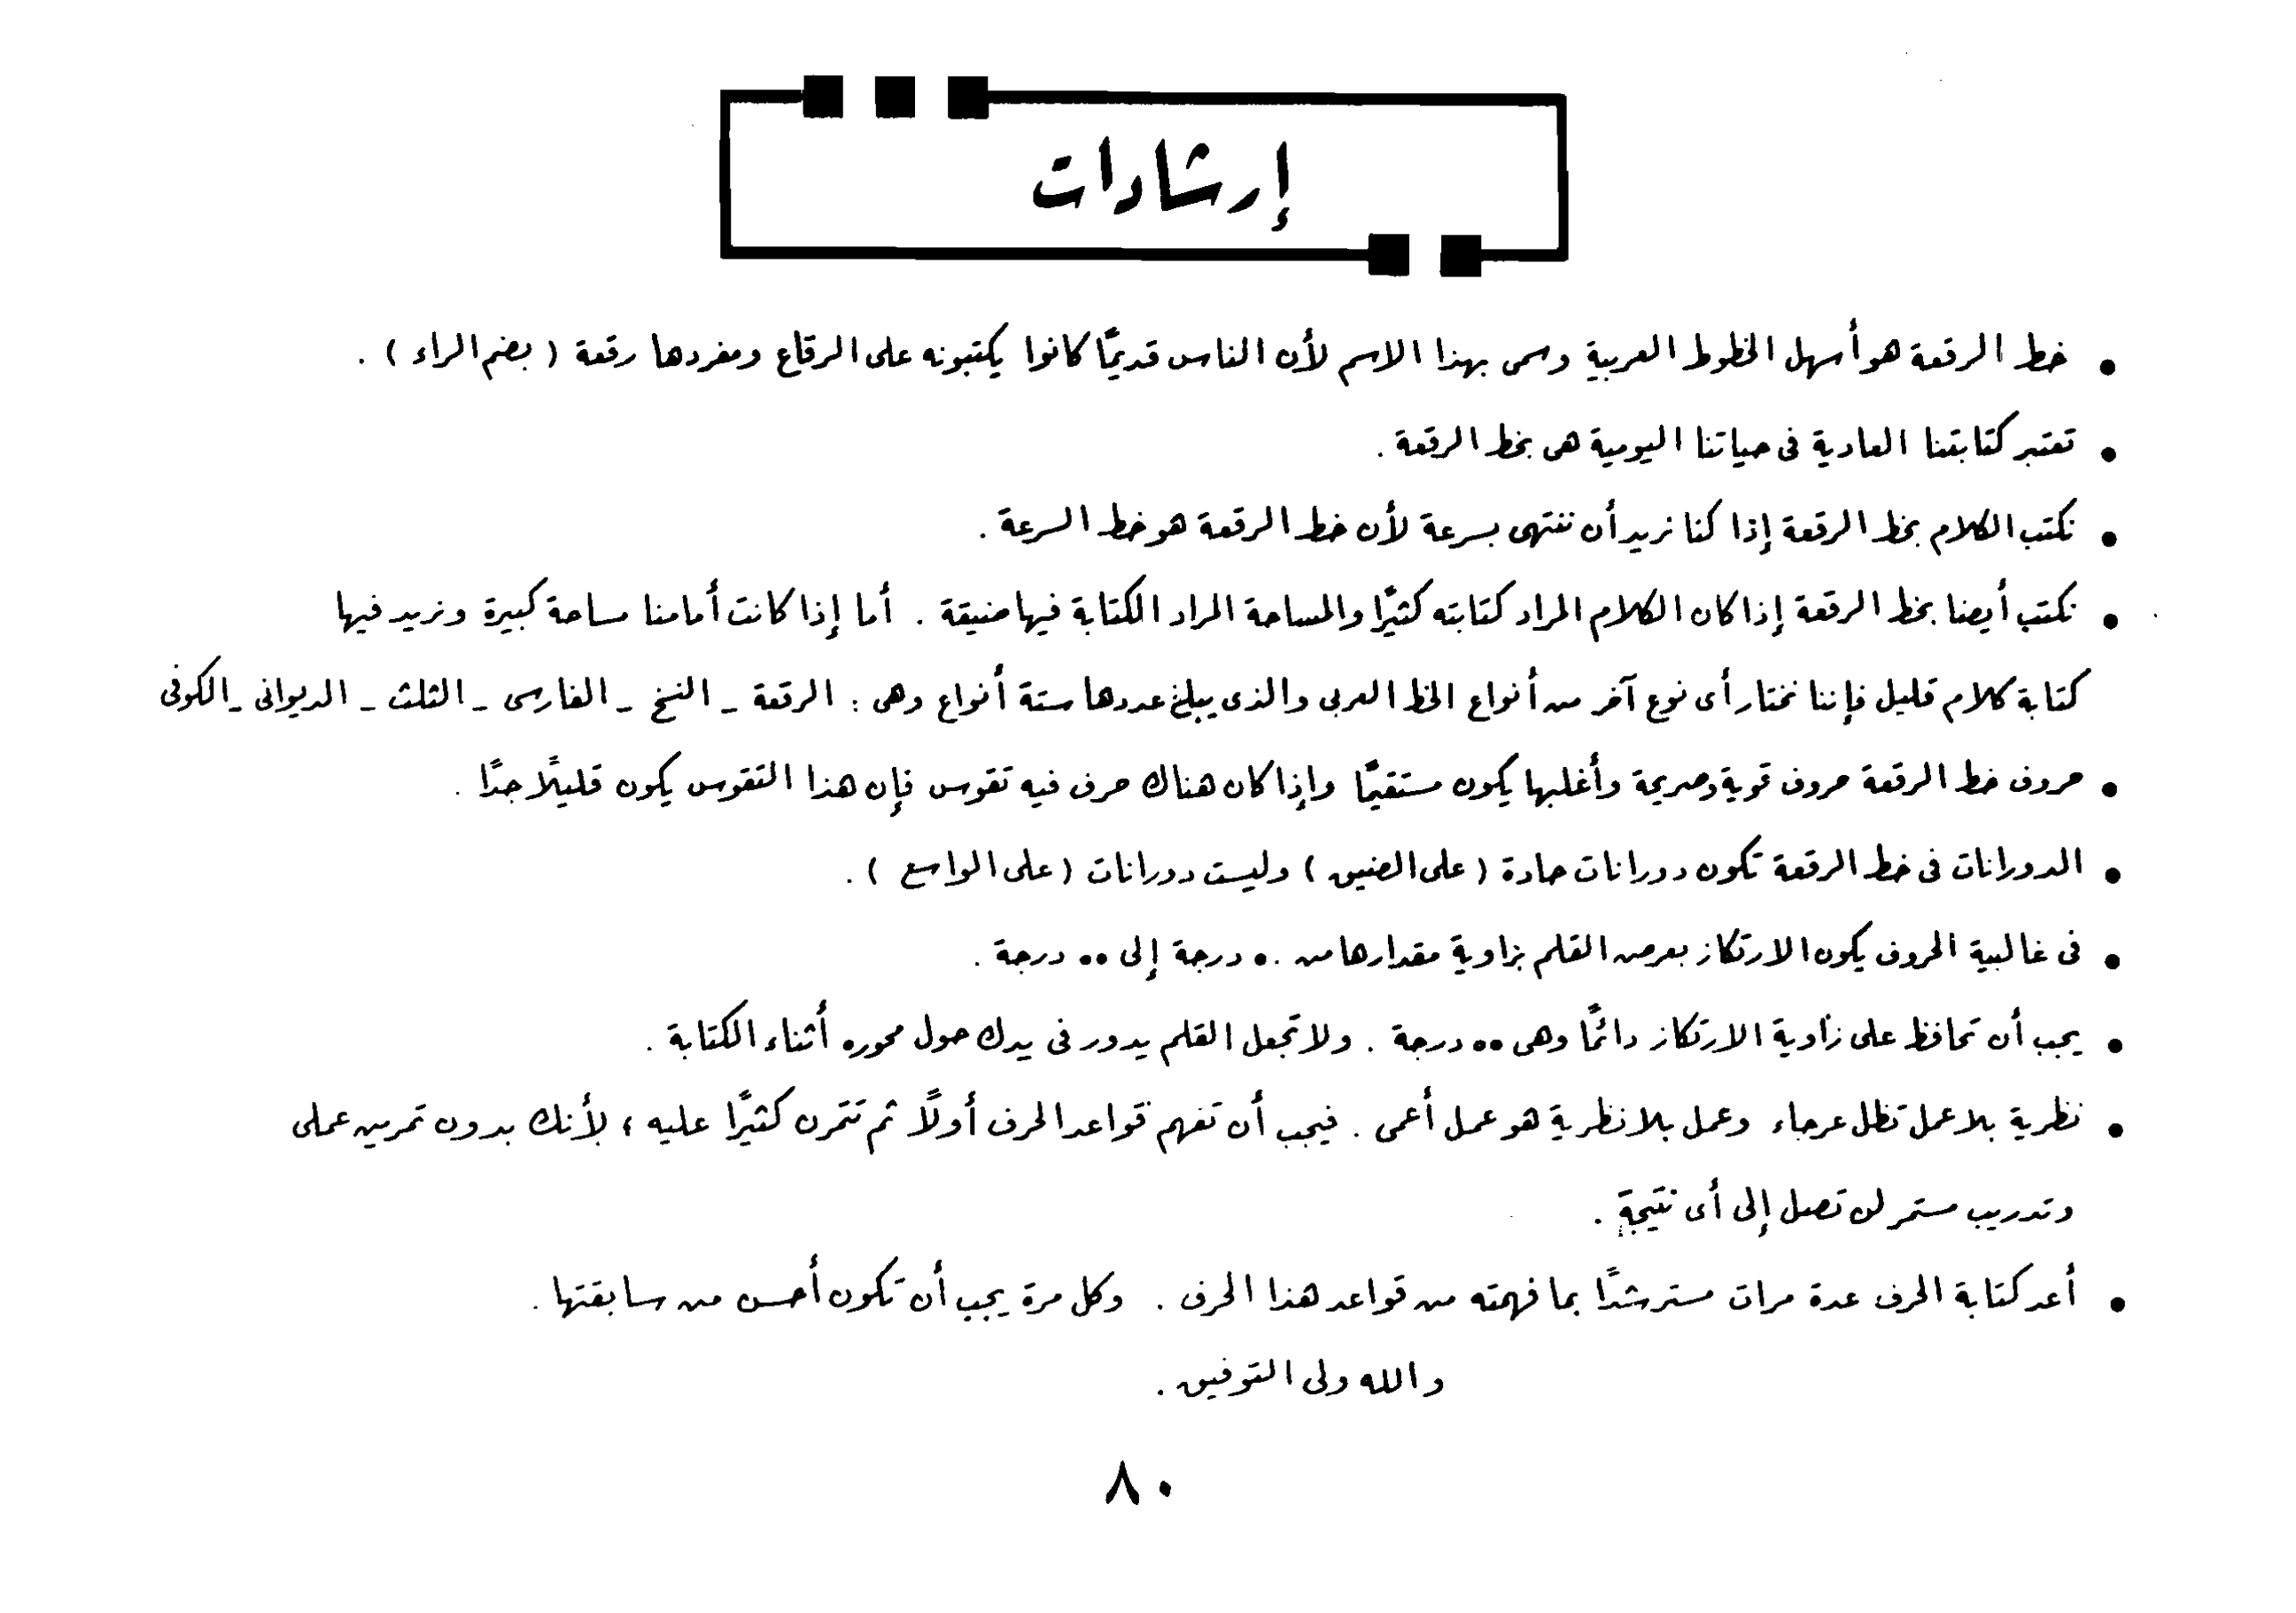 إرشادات
• خط الرقعة هو أسهل الخطوط العربية وسمى بهذا الاسم لأن الناس قديمًا كانوا يكتبونه على الرقاع ومفردها رقعة ( بضم الراء ) .
• تعتبر كتابتنا العادية فى حياتنا اليومية هى بخط الرقعة .
• نكتب الكلام بخط الرقعة إذا كنا نريد أن ننتهى بسرعة لأن خط الرقعة هو خط السرعة .
• نكتب أيضا بخط الرقعة إذا كان الكلام المراد كتابته كثيرًا والمساحة المراد الكتابة فيها ضيقة . أما إذا كانت أمامنا مساحة كبيرة ونريد فيها
كتابة كلام قليل فإننا نختار أى نوع آخر من أنواع الخط العربى والذى يبلغ عددها ستة أنواع وهى : الرقعة ـ النسخ ـ الفارسى ـ الثلث ـ الديوانى ـ الكوفى
• حروف خط الرقعة حروف قوية وصريحة وأغلبها يكون مستقيمًا وإذا كان هناك حرف فيه تقوس فإن هذا التقوس يكون قليلًا جدًا .
• الدورانات فى خط الرقعة تكون دورانات حادة ( على الضيق ) وليست دورانات ( على الواسع ) .
• فى غالبية الحروف يكون الارتكاز بعرض القلم بزاوية مقدارها من ٥٠ درجة إلى ٥٥ درجة .
• يجب أن تحافظ على زاوية الارتكاز دائمًا وهى ٥٥ درجة . ولا تجعل القلم يدور فى يدك حول محوره أثناء الكتابة .
• نظرية بلا عمل تظل عرجاء وعمل بلا نظرية هو عمل أعمى . فيجب أن تفهم قواعد الحرف أولًا ثم تتمرن كثيرًا عليه ؛ لأنك بدون تمرين عملى
وتدريب مستمر لن تصل إلى أى نتيجة .
• أعد كتابة الحرف عدة مرات مسترشدًا بما فهمته من قواعد هذا الحرف . وكل مرة يجب أن تكون أحسن من سابقتها .
والله ولى التوفيق .
٨٠